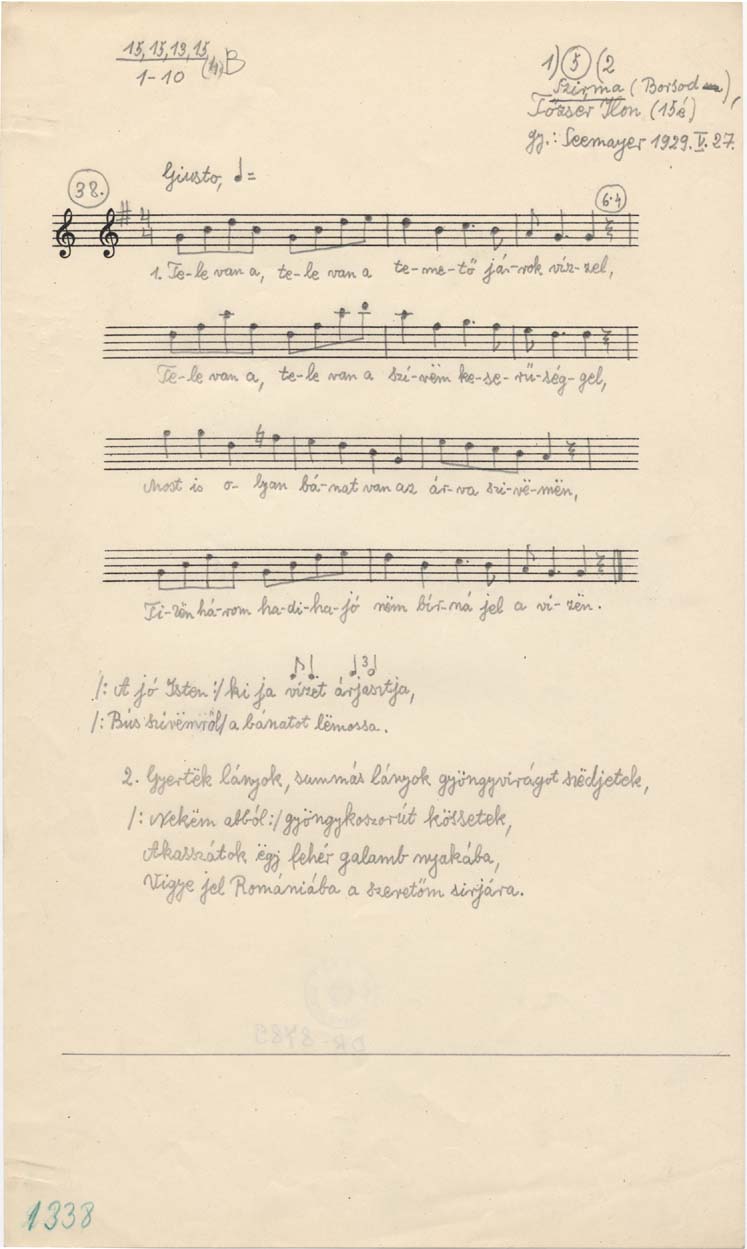 15, 15, 13, 15
1-10 (4) B
1) 5 (2
Szirma (Borsod),
Tőzsér Ilon (15 é)
gy.: Seemayer 1929. V. 27.
Giusto,
38.
6·4
1. Te-le van a, te-le van a te-me-tő já-rok víz-zel,
Te-le van a, te-le van a szí-vëm ke-se-rű-ség-gel,
Most is o-lyan bá-nat van az ár-va szi-vë-mën,
Ti-zën há-rom ha-di-ha-jó nëm bír-ná jel a ví-zën.
/: A jó Isten :/ ki ja vizet árjasztja,
/: Bús szívëmről / a bánatot lëmossa.
2. Gyertëk lányok, summás lányok gyöngyvirágot szëdjetek,
/: Nekëm abból :/ gyöngykoszorút kössetek,
Akasszátok ëgj fehér galamb nyakába,
Vigye jel Romániába a szeretőm sirjára.
1338